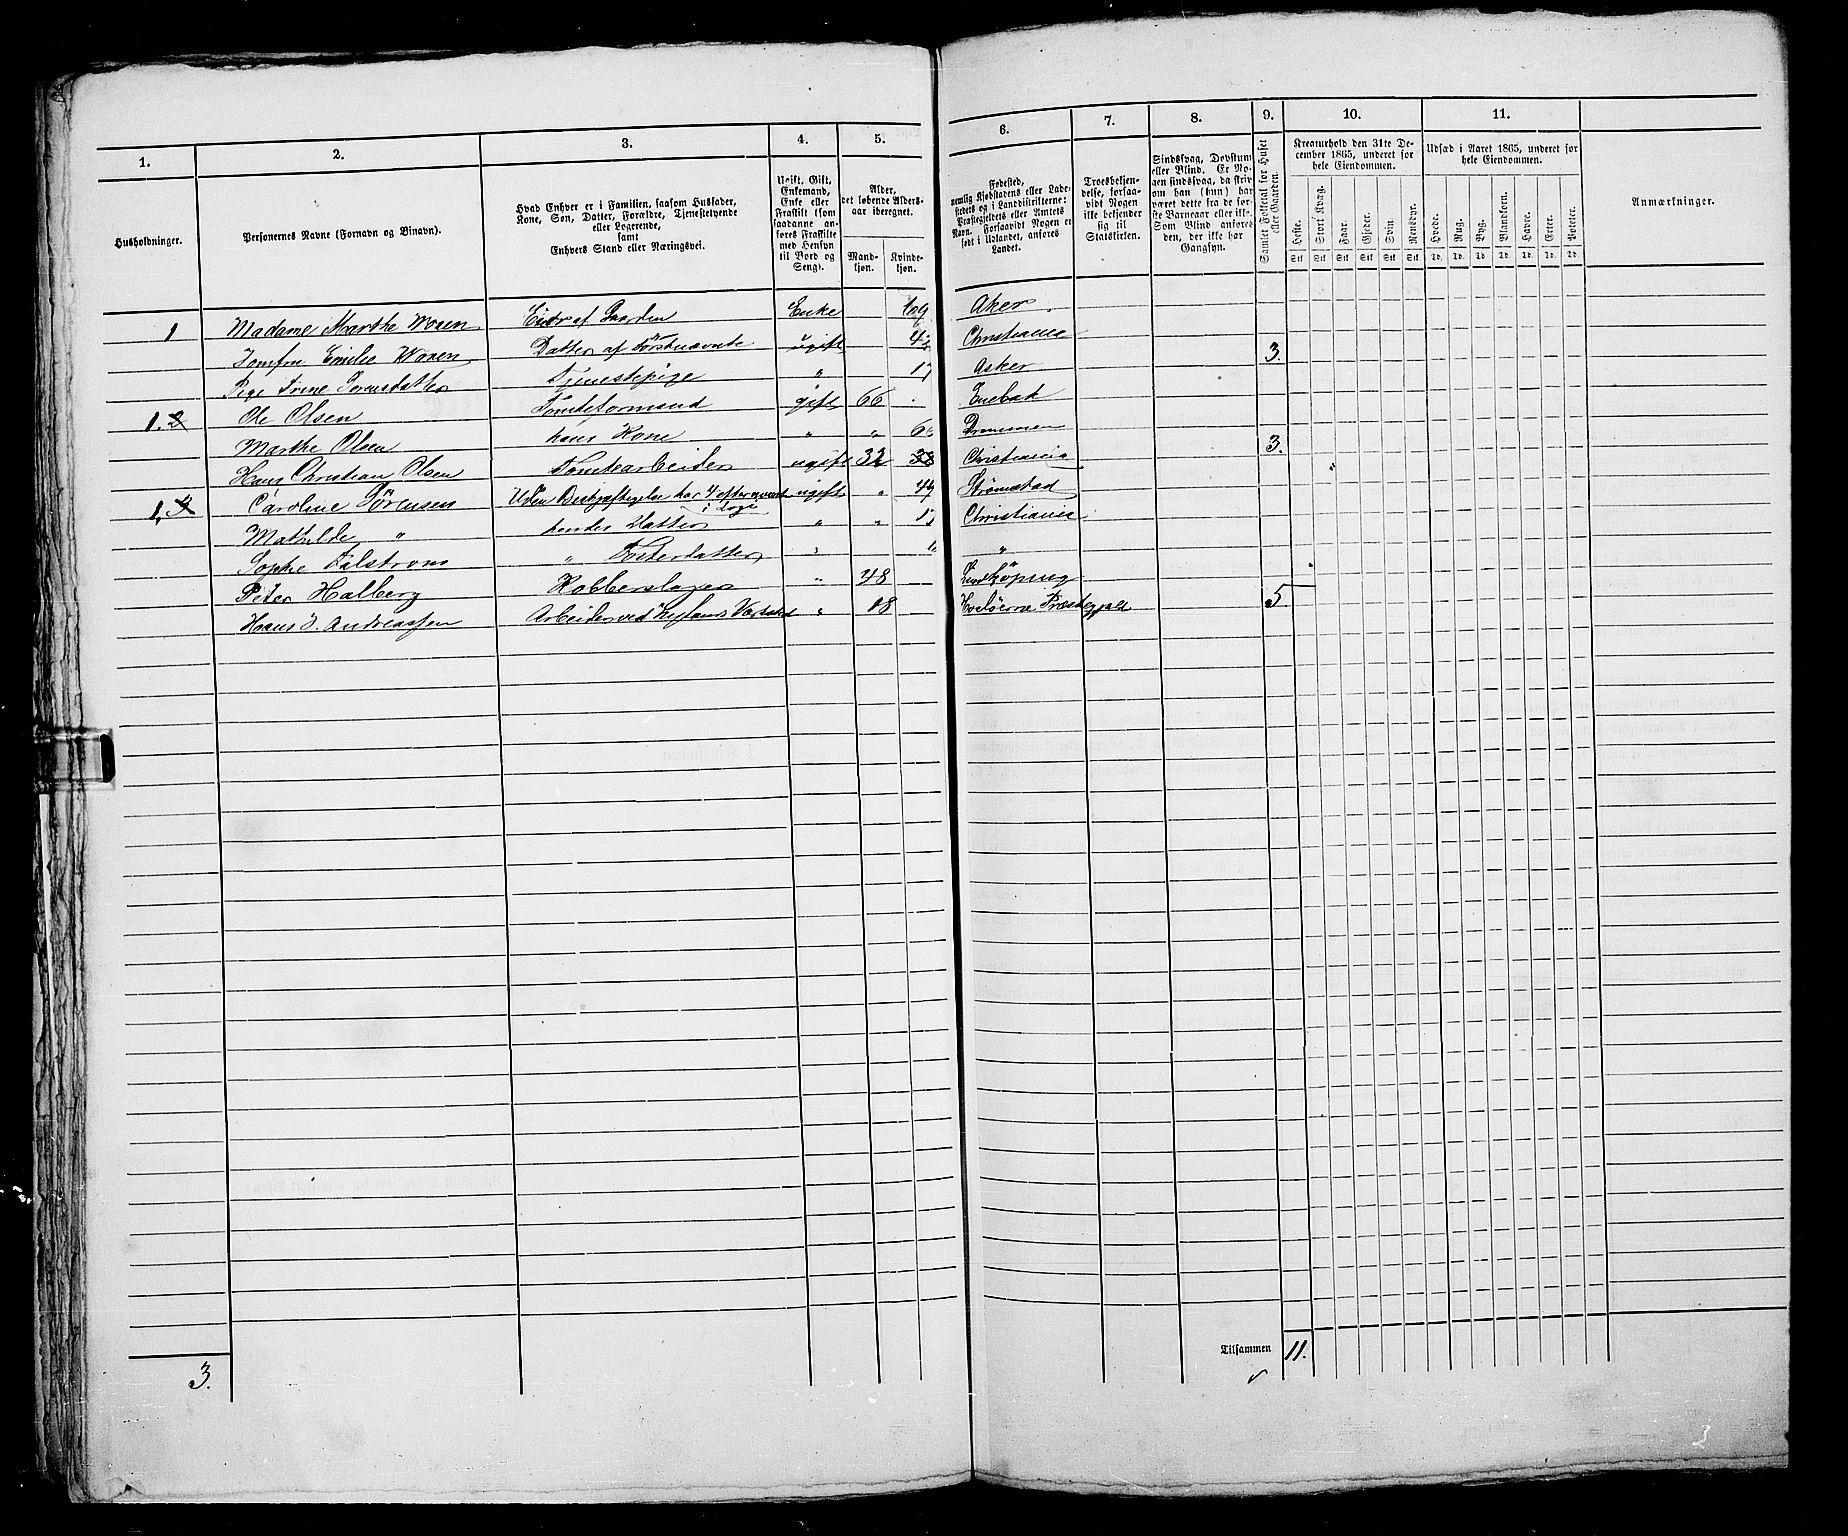 1.
2.
3.
4.
5.
6.
7.
8.
9.
10.
11.
Husholdninger.
Personernes Navne (Fornavn og Binavn).
Hvad Enhver er i Familien, saasom Husfader,
Kone, Søn, Datter, Forældre, Tjenestetyende
eller Logerende,
samt
Enhvers Stand eller Næringsvei.
Ugift, Gift,
Enkemand,
Enke eller
Fraskilt (som
saadanne an-
føres Fraskilte
med Hensyn
til Bord og
Seng).
Alder,
det løbende Alders-
aar iberegnet.
Mand-
kjøn.
Kvinde-
kjøn.
Fødested,
nemlig Kjøbstadens eller Lade-
stedets og i Landdistrikterne:
Præstegjeldets eller Amtets
Navn. Forsaavidt Nogen er
født i Udlandet, anføres
Landet.
Troesbekjen-
delse, forsaa-
vidt Nogen
ikke bekjender
sig til
Statskirken.
Sindssvag, Døvstum
eller Blind. Er No-
gen sindssvag, da skriv
om han (hun) har
været dette fra de før-
ste Barneaar eller ikke.
Som Blind anføres
den, der ikke har
Gangsyn.
Samlet Folketal for Huset
eller Gaarden.
Kreaturhold den 31te De-
cember 1865, underet for
hele Eiendommen.
Heste. Stort Kvæg. Faar. Gjeder. Svin. Rensdyr.
Stk Stk Stk Stk Stk Stk
Udsæd i Aaret 1865, underet for
hele Eiendommen.
Hvede. Rug. Byg. Blandkorn. Havre. Erter. Poteter.
Td. Td. Td Td Td. Td Td
Anmærkninger.
1 Madame Marthe Woxen Eier af Gaarden Enke 69 Aker
Jomfru Emilie Woxen Datter af Førstnævnte ugift Christiania
Pige Trine Sorensdatter Tjenestepige " 17 Asker 3.
1. 2 Ole Olsen Tomteformand gift 66 Enebak
Marthe Olsen hans Kone " " Drammen
Hans Christian Olsen Tomtearbeider ugift 32 38 Christiania 3.
1. Caroline Sörensen Uden Beskjæftigelse har 4 efternævnte i Logi ugift " Strømstad
Mathilde " hendes Datter " " Christiania
Sophie Falstrøm " Fosterdatter " "
Peter Halberg Kobberslager " 48 Lindköping
Hans J. Andreassen Arbeider ved Nylands Værksted " 18 Hvaløerne Præstegjeld 5
3.
Tilsammen 11.
3